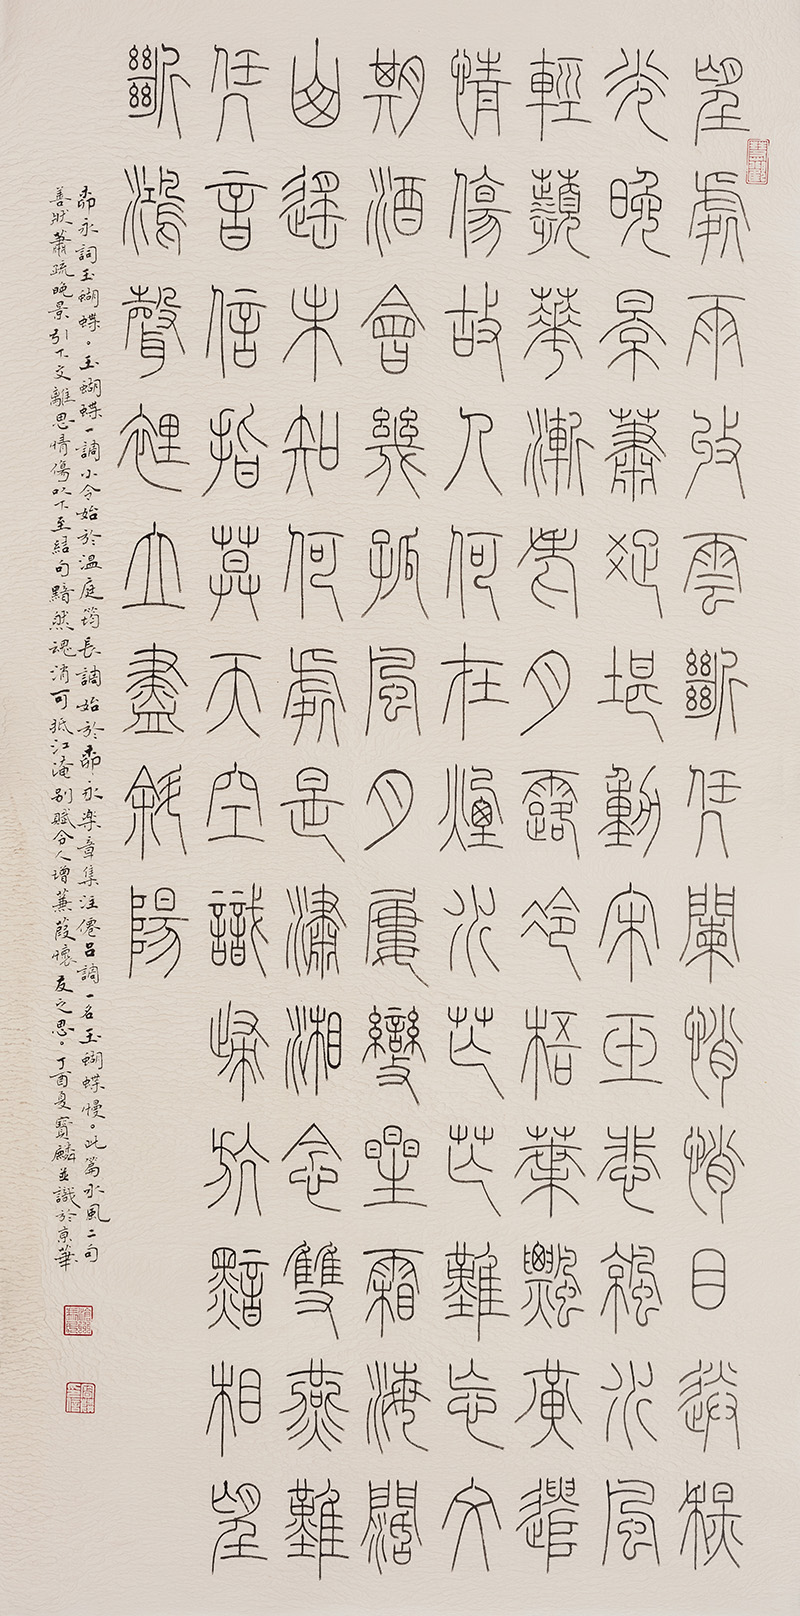 望處雨收雲斷凭闌悄悄目送秋
光晚景蕭疏堪動宋玉悲涼水風
輕蘋華漸老月露冷梧葉飄黃遣
情傷故人何在煙水芒芒難忘文
期酒會幾孤風月屢變星霜海闊
山遙未知何處是瀟湘念雙燕難
凭音信指莫天空識歸航黯相望
斷鴻聲裡立盡斜陽
柳永詞玉蝴蝶。玉蝴蝶一調小令始於溫庭筠長調始於柳永樂章集注僊呂調一名玉蝴蝶慢。此篇水風二句
善狀蕭疏晚景引下文離思情傷以下至結句黯然魂消可抵江淹別賦令人增蒹葭懷友之思。丁酉夏寶麟並識於京華